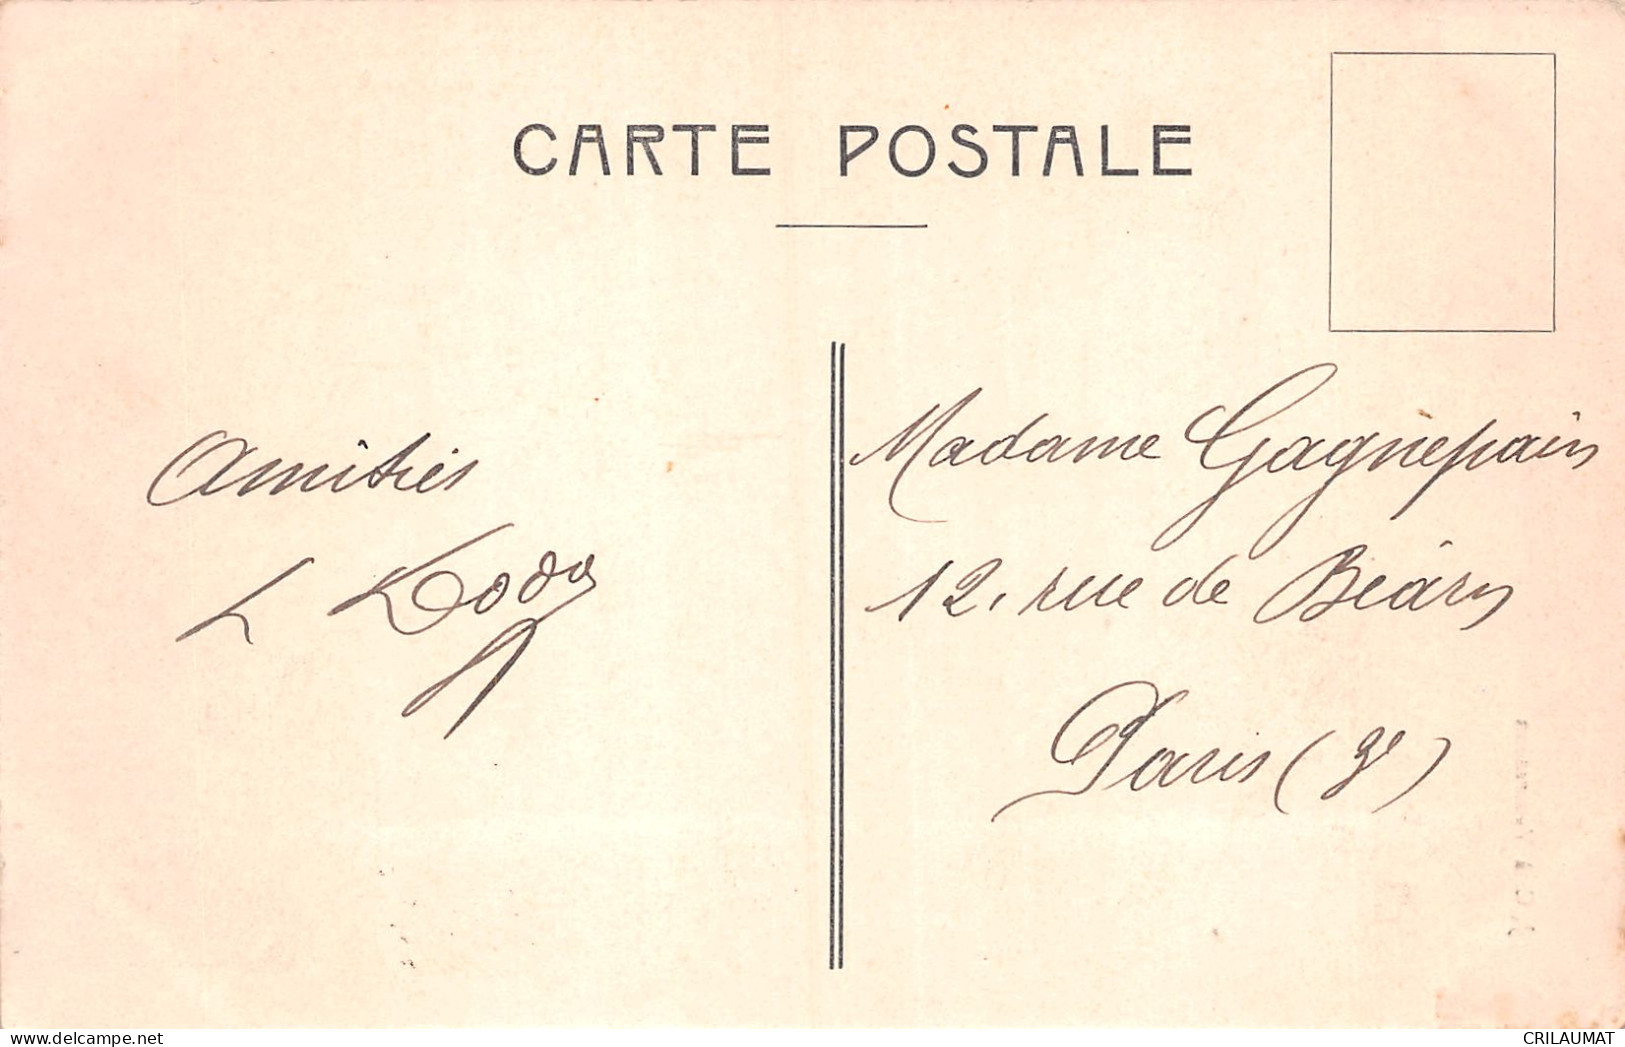 CARTE POSTALE
Amitiés
L Dody
Madame Gagnepain
12, rue de Béarn
Paris (3e)
CRILAUMAT